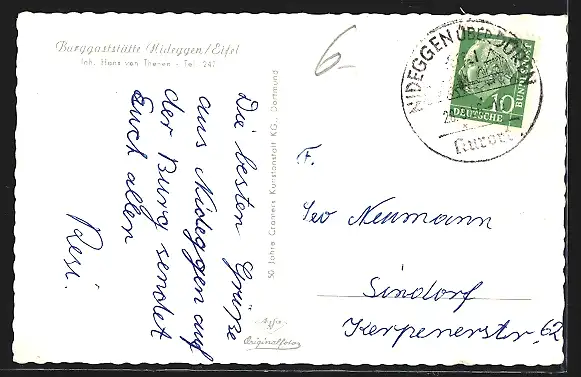 Burggaststätte Nideggen/Eifel
Inh. Hans von Thenen - Tel. 247
6-
Die besten Grüße
aus Nideggen auf
der Burg sendet
Euch allen
Resi.
50 Jahre Cramers Kunstanstalt KG., Dortmund
Originalfoto
NIDEGGEN ÜBER DÜREN
Kurort
10
DEUTSCHE
BUN
F.
Leo Neumann
Sindorf
Kerpenerstr. 62